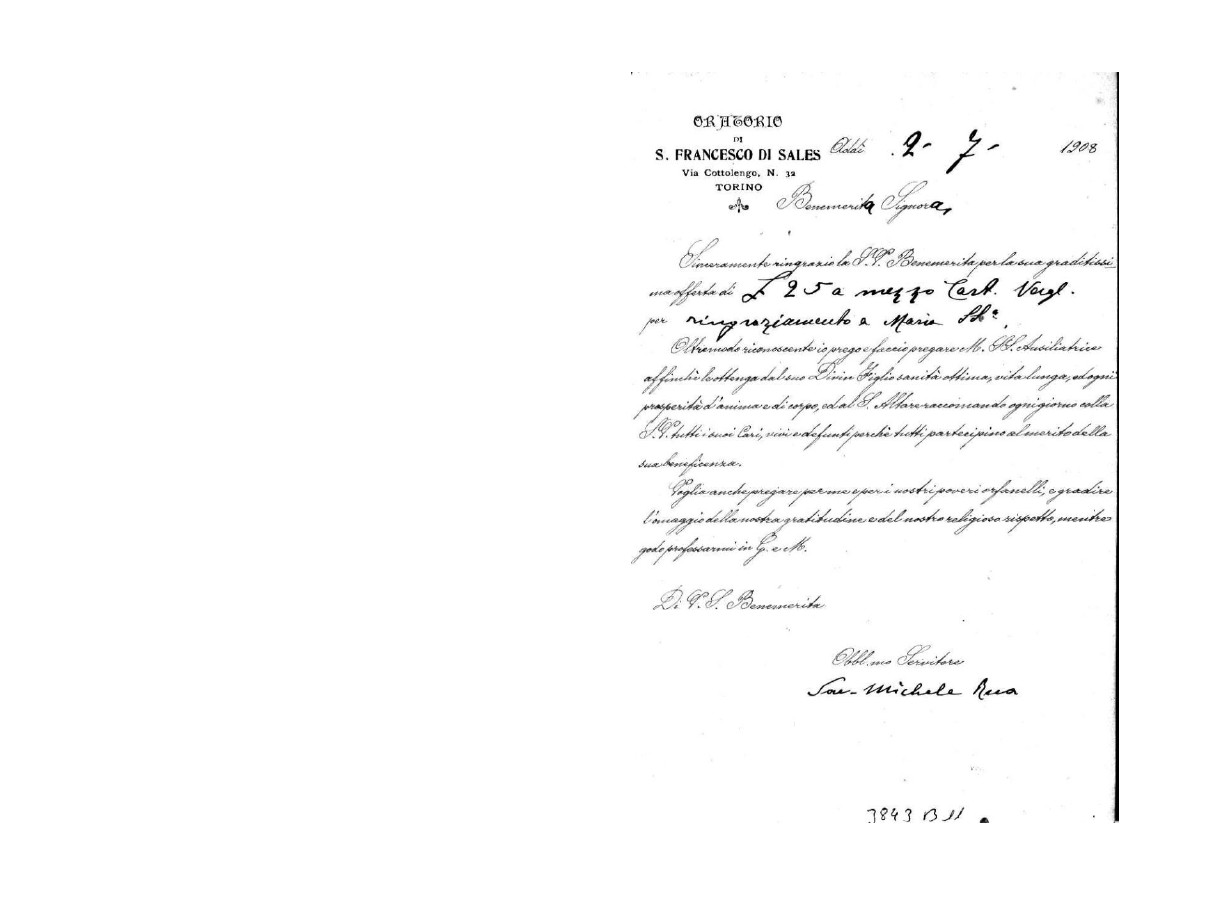 ORATORIO
DI
S. FRANCESCO DI SALES
Via Cottolengo, N. 32
TORINO
Addì 2 - 7 - 1908
Benemerita Signora,
Sinceramente ringrazio la S. V. Benemerita per la sua graditissi-
ma offerta di £ 25 a mezzo Cart. Vagl.
per ringraziamento a Maria SS.a,
Oltremodo riconoscente io prego e faccio pregare M. SS. Ausiliatrice
affinchè le ottenga dal suo Divin Figlio sanità ottima, vita lunga, ed ogni
prosperità d'anima e di corpo, ed al S. Altare raccomando ogni giorno colla
S. V. tutti i suoi Cari, vivi e defunti perchè tutti partecipino al merito della
sua beneficenza.
Voglia anche pregare per me e per i nostri poveri orfanelli, e gradire
l'omaggio della nostra gratitudine e del nostro religioso rispetto, mentre
godo professarmi in G. e M.
Di V. S. Benemerita
Obbl.mo Servitore
Sac. Michele Rua
3843 B 11